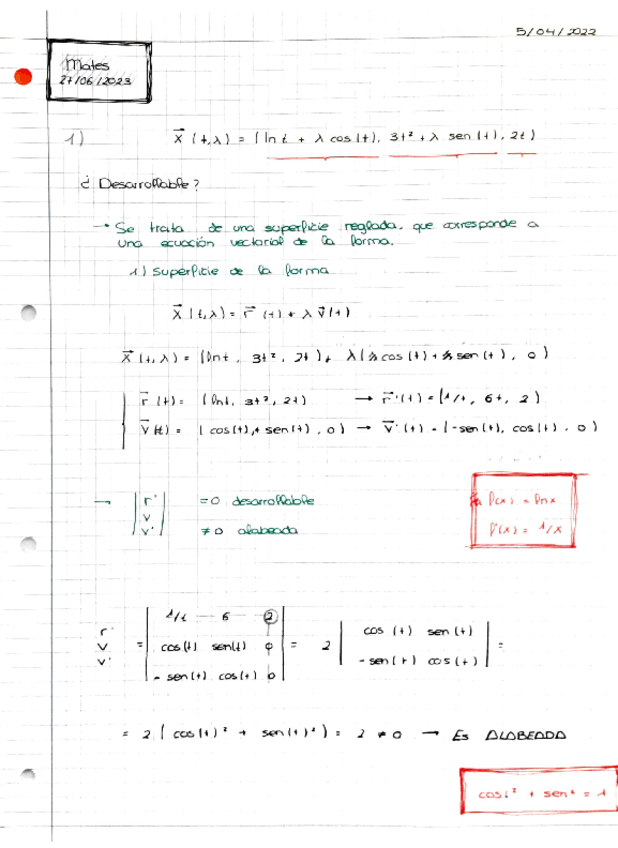 5/04/2022
Mates
27/06/2023
1) x⃗ (t,λ) = (ln t + λ cos(t), 3t² + λ sen(t), 2t)
¿ Desarrollable?
→ Se trata de una superficie reglada, que corresponde a
una ecuación vectorial de la forma.
1) superficie de la forma
x⃗ (t,λ) = r⃗ (t) + λ v⃗(t)
x⃗ (t,λ) = (lnt, 3t², 2t) + λ( cos(t) + sen(t), 0)
r⃗ (t) = (lnt, 3t², 2t) → r⃗'(t) = (1/t, 6t, 2)
v⃗(t) = (cos(t), + sen(t), 0) → v⃗'(t) = (-sen(t), cos(t), 0)
→ | r' | = 0 desarrollable
| v |
| v' | ≠ 0 alabeada
f(x) = lnx
f'(x) = 1/x
r' | 1/t 6 2 |
v = | cos(t) sen(t) 0 | = 2 | cos (t) sen(t) | =
v' | - sen(t) cos(t) 0 | | -sen(t) cos(t) |
= 2 ( cos(t)² + sen(t)²) = 2 ≠ 0 → Es ALABEADA
cos² + sen² = 1